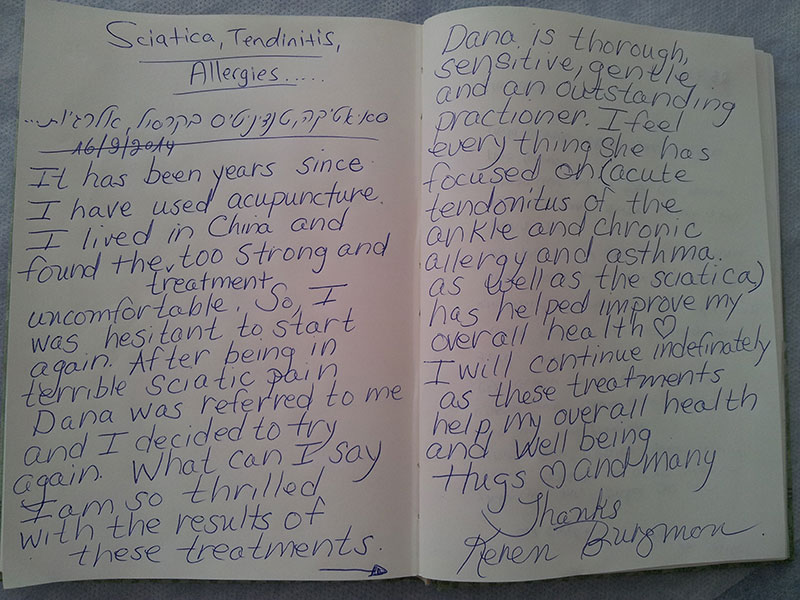 Sciatica, Tendinitis,
Allergies.....
סאיאטיקה, טנדיניטיס בקרסול, אלרגיות...
16/9/2014
It has been years since
I have used acupuncture.
I lived in China and
found the too strong and
treatment
uncomfortable. So, I
was hesitant to start
again. After being in
terrible sciatic pain
Dana was referred to me
and I decided to try
again. What can I say
I am so thrilled
with the results of
these treatments.
Dana is thorough,
sensitive, gentle
and an outstanding
practioner. I feel
every thing she has
focused on (acute
tendonitus of the
ankle and chronic
allergy and asthma.
as well as the sciatica)
has helped improve my
overall health ♡
I will continue indefinately
as these treatments
help my overall health
and well being
Hugs ♡ and many
Thanks
Keren